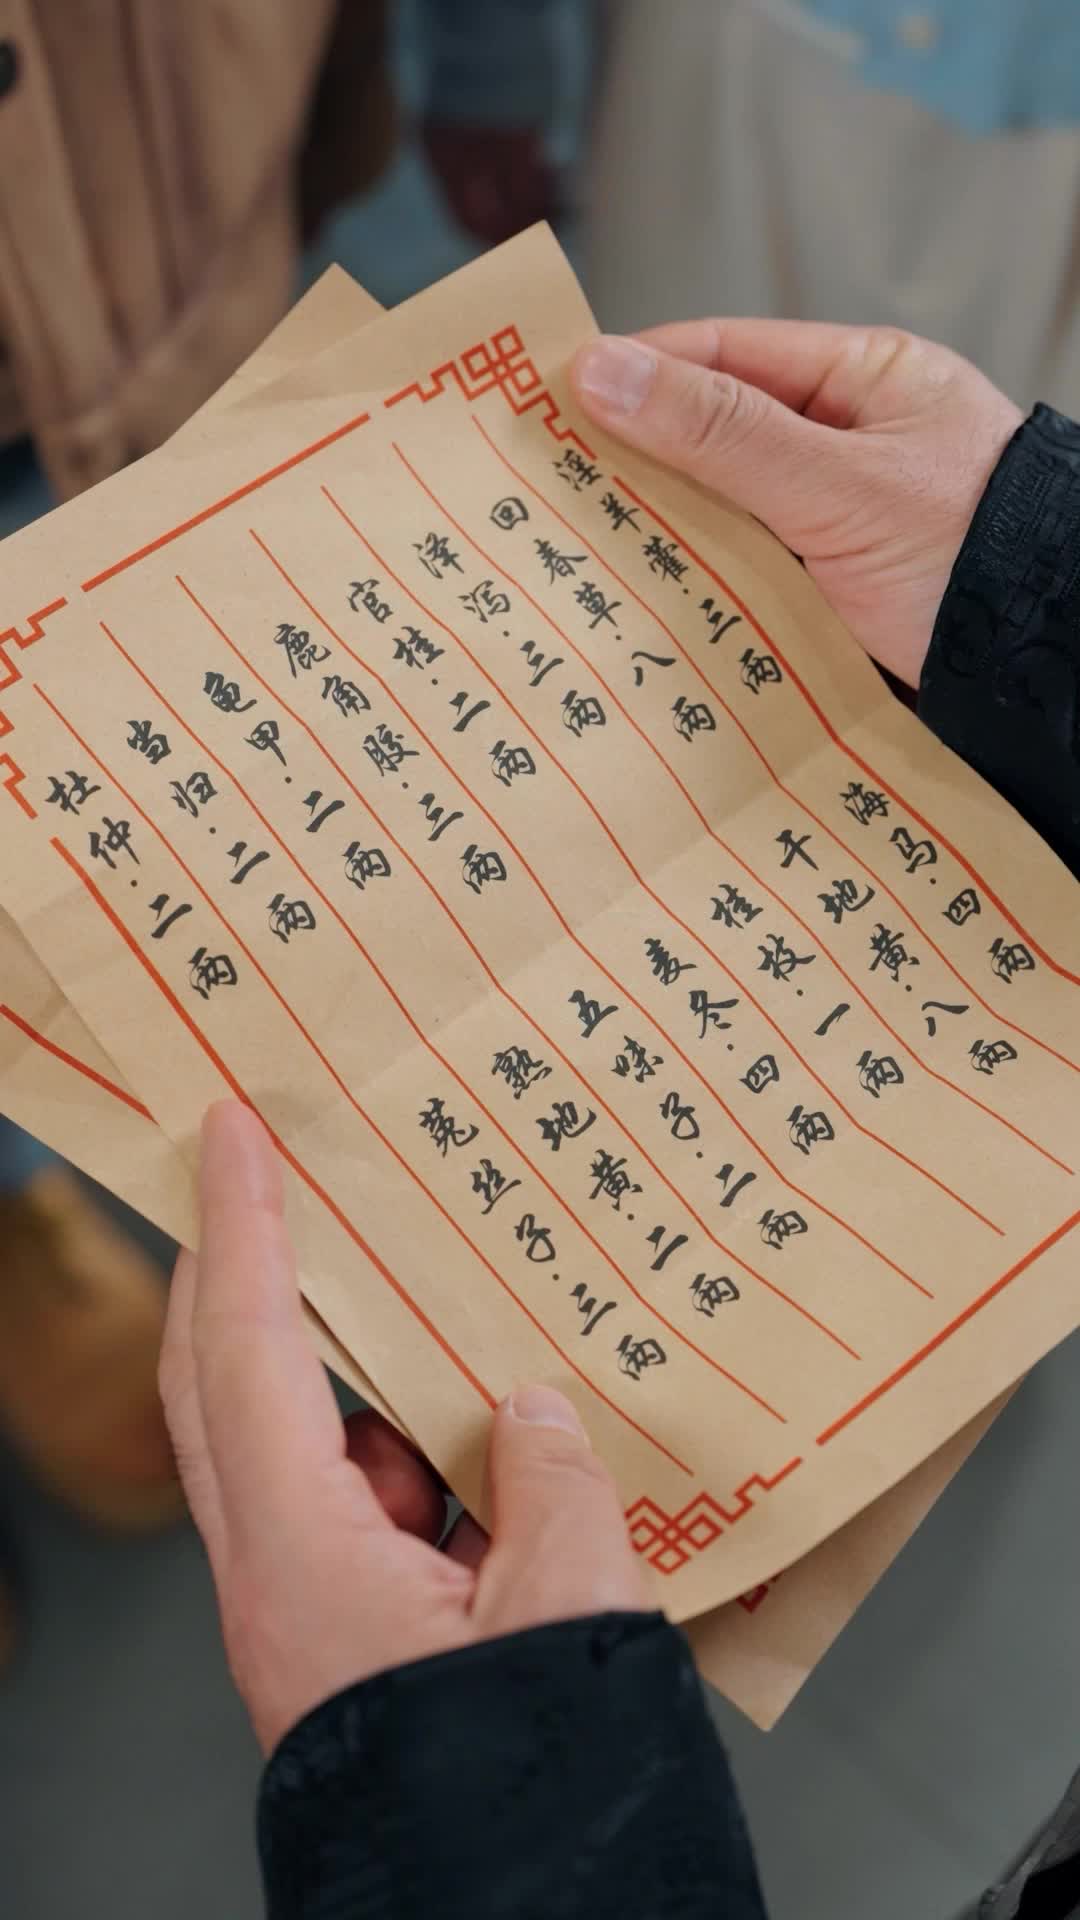 淫羊藿·三两
回春草·八两
泽泻·三两
官桂·二两
鹿角胶·三两
龟甲·二两
当归·二两
杜仲·二两
海马·四两
干地黄·八两
桂枝·一两
麦冬·四两
五味子·二两
熟地黄·二两
菟丝子·三两